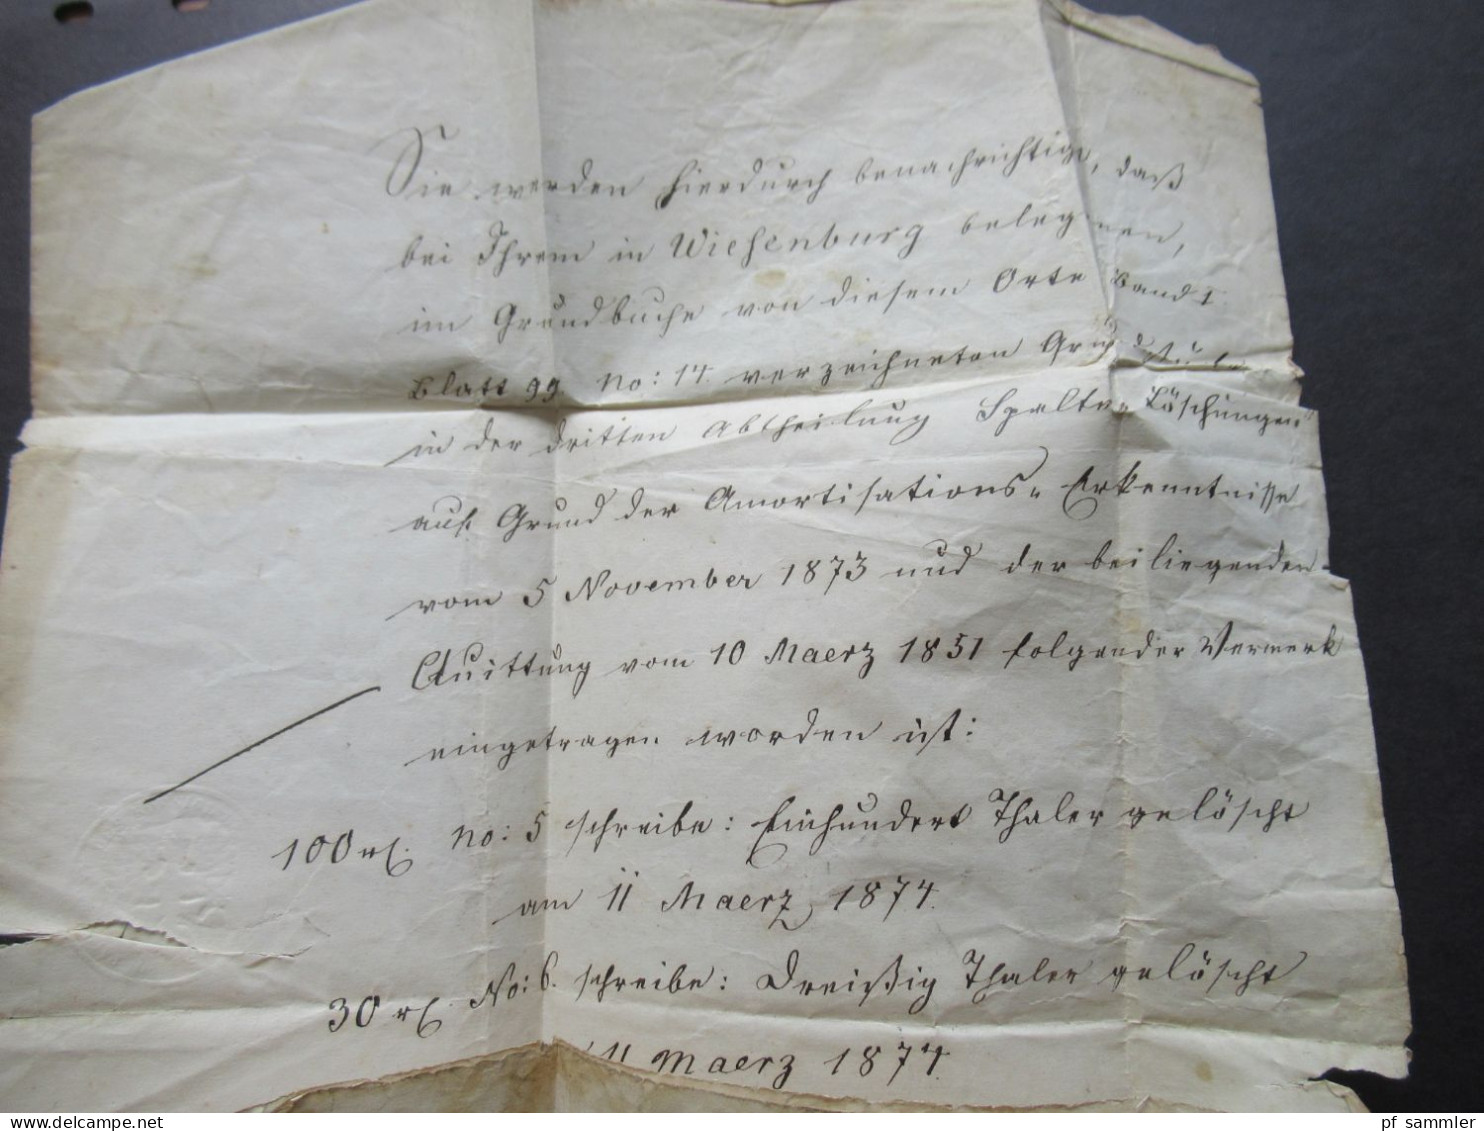 Sie werden hierdurch benachrichtigt, daß
bei Ihrem in Wiesenburg belegenen,
im Grundbuche von diesem Orte Band I
Blatt 99. No: 14. verzeichneten Grundstücke
in der dritten Abtheilung Spalte „Löschungen“
auf Grund der Amortisations- Erkenntnisse
vom 5 November 1873 und der beiliegenden
Quittung vom 10 Maerz 1851 folgender Vermerk
eingetragen worden ist:
100 rl. No: 5 schreibe: Einhundert Thaler gelöscht
am 11 Maerz 1874.
30 rl. No: 6. schreibe: Dreißig Thaler gelöscht
11 Maerz 1874.
pf sammler